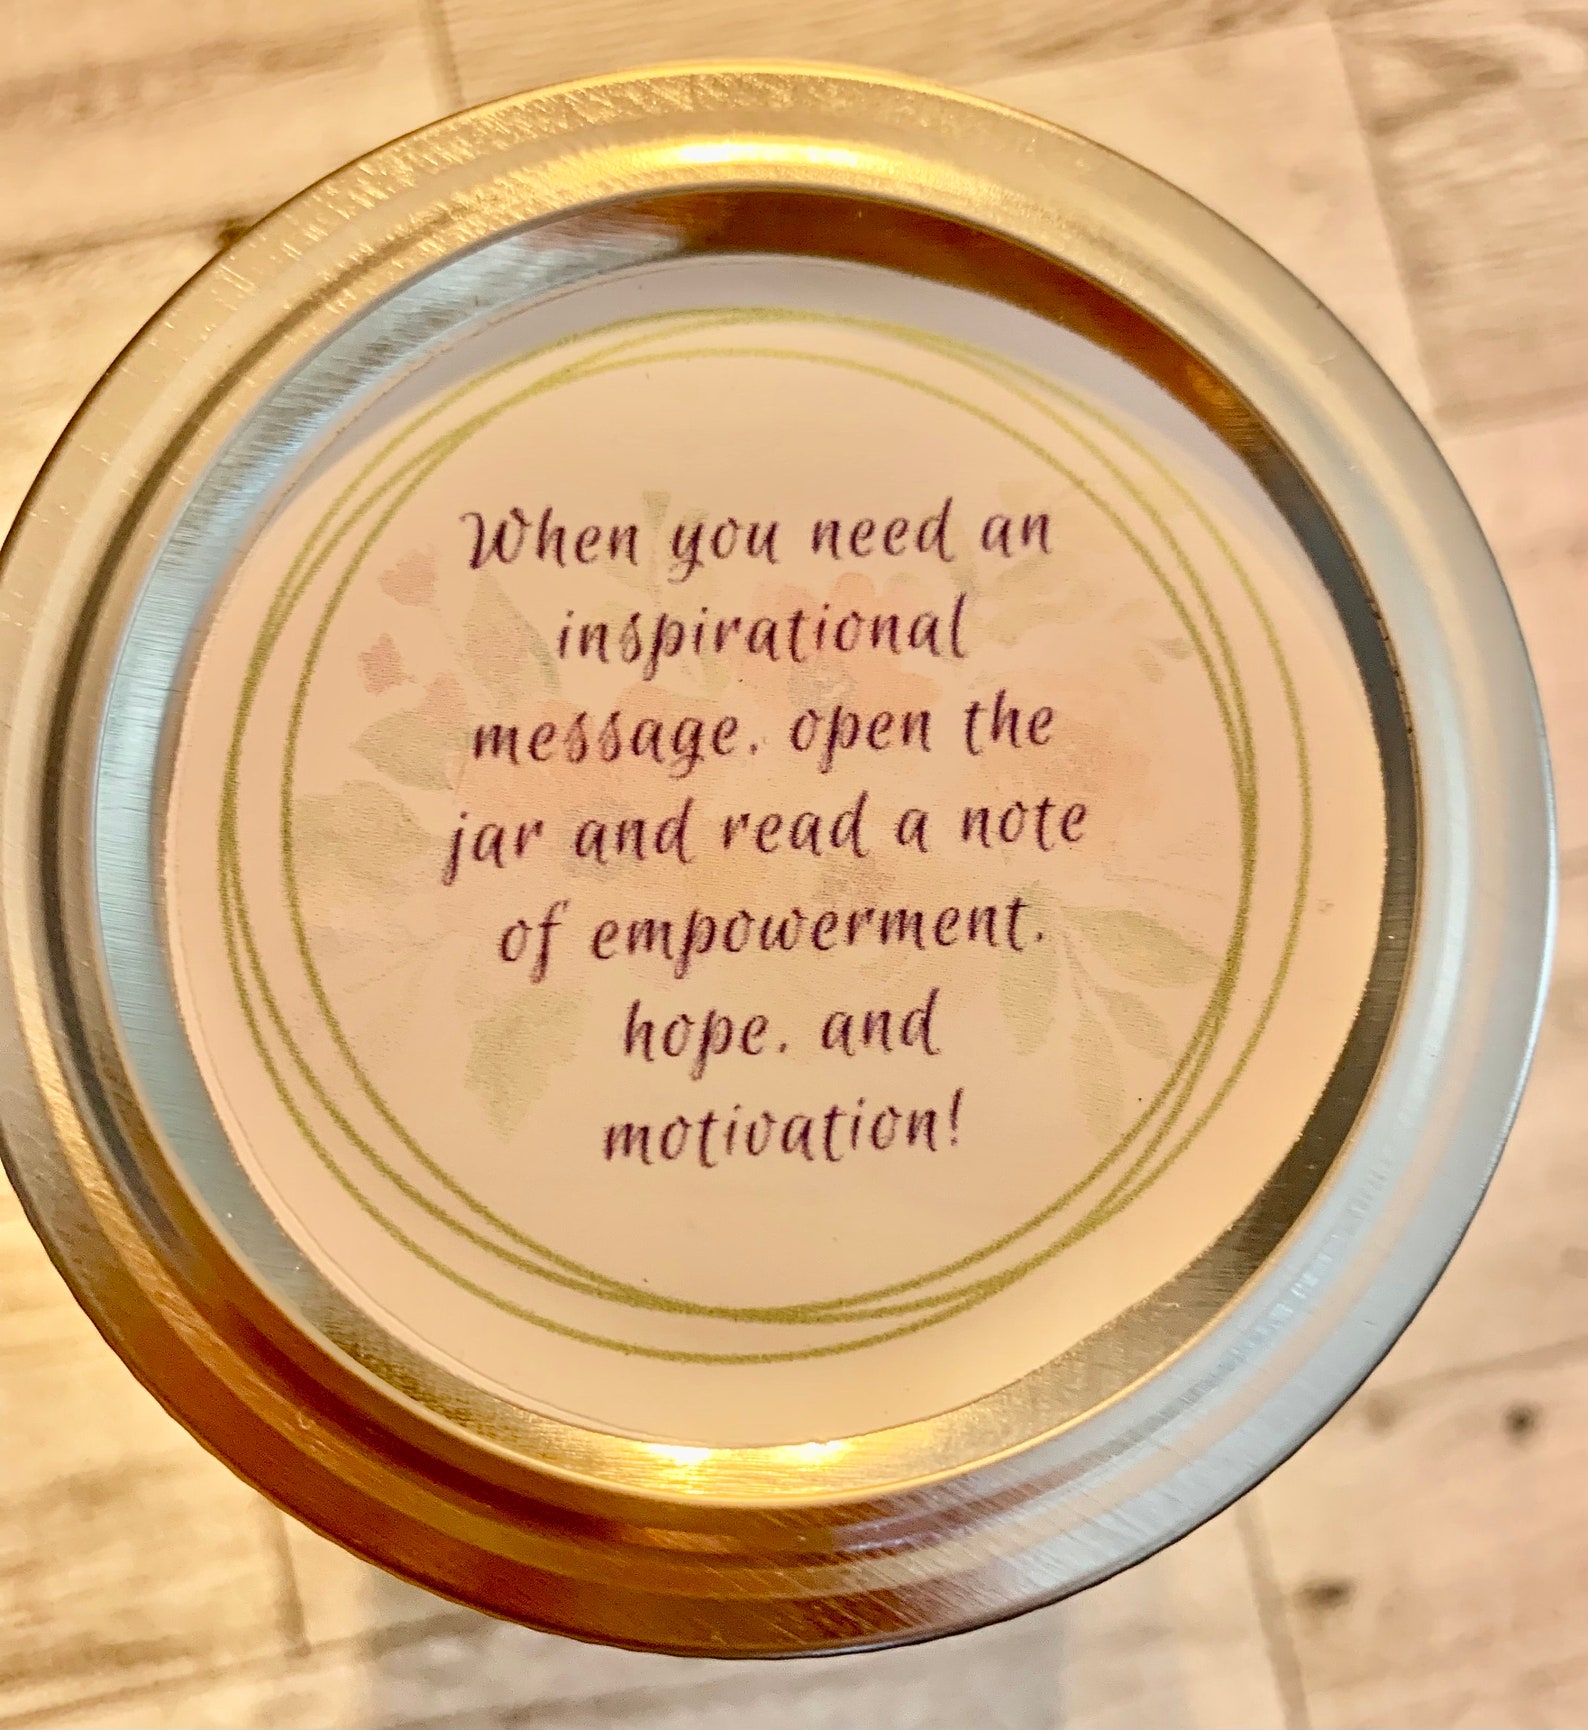 When you need an
inspirational
message, open the
jar and read a note
of empowerment,
hope, and
motivation!